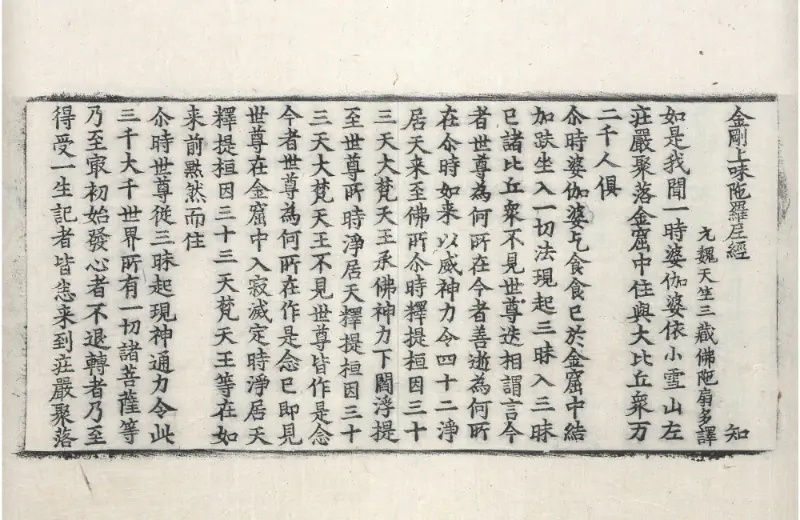 金剛上味陁羅尼經 知
元魏天竺三藏佛陁扇多譯
如是我聞一時婆伽婆依小雪山左
莊嚴聚落金窟中住與大比丘衆万
二千人俱
尒時婆伽婆乞食食已於金窟中結
加趺坐入一切法現起三昧入三昧
已諸比丘衆不見世尊迭相謂言今
者世尊為何所在今者善逝為何所
在尒時如来以威神力令四十二淨
居天来至佛所尒時釋提桓因三十
三天大梵天王承佛神力下閻浮提
至世尊所時淨居天釋提桓因三十
三天大梵天王不見世尊皆作是念
今者世尊為何所在作是念已即見
世尊在金窟中入寂滅定時淨居天
釋提桓因三十三天梵天王等在如
来前黙然而住
尒時世尊從三昧起現神通力令此
三千大千世界所有一切諸菩薩等
乃至㝡初始發心者不退轉者乃至
得受一生記者皆悉来到莊嚴聚落